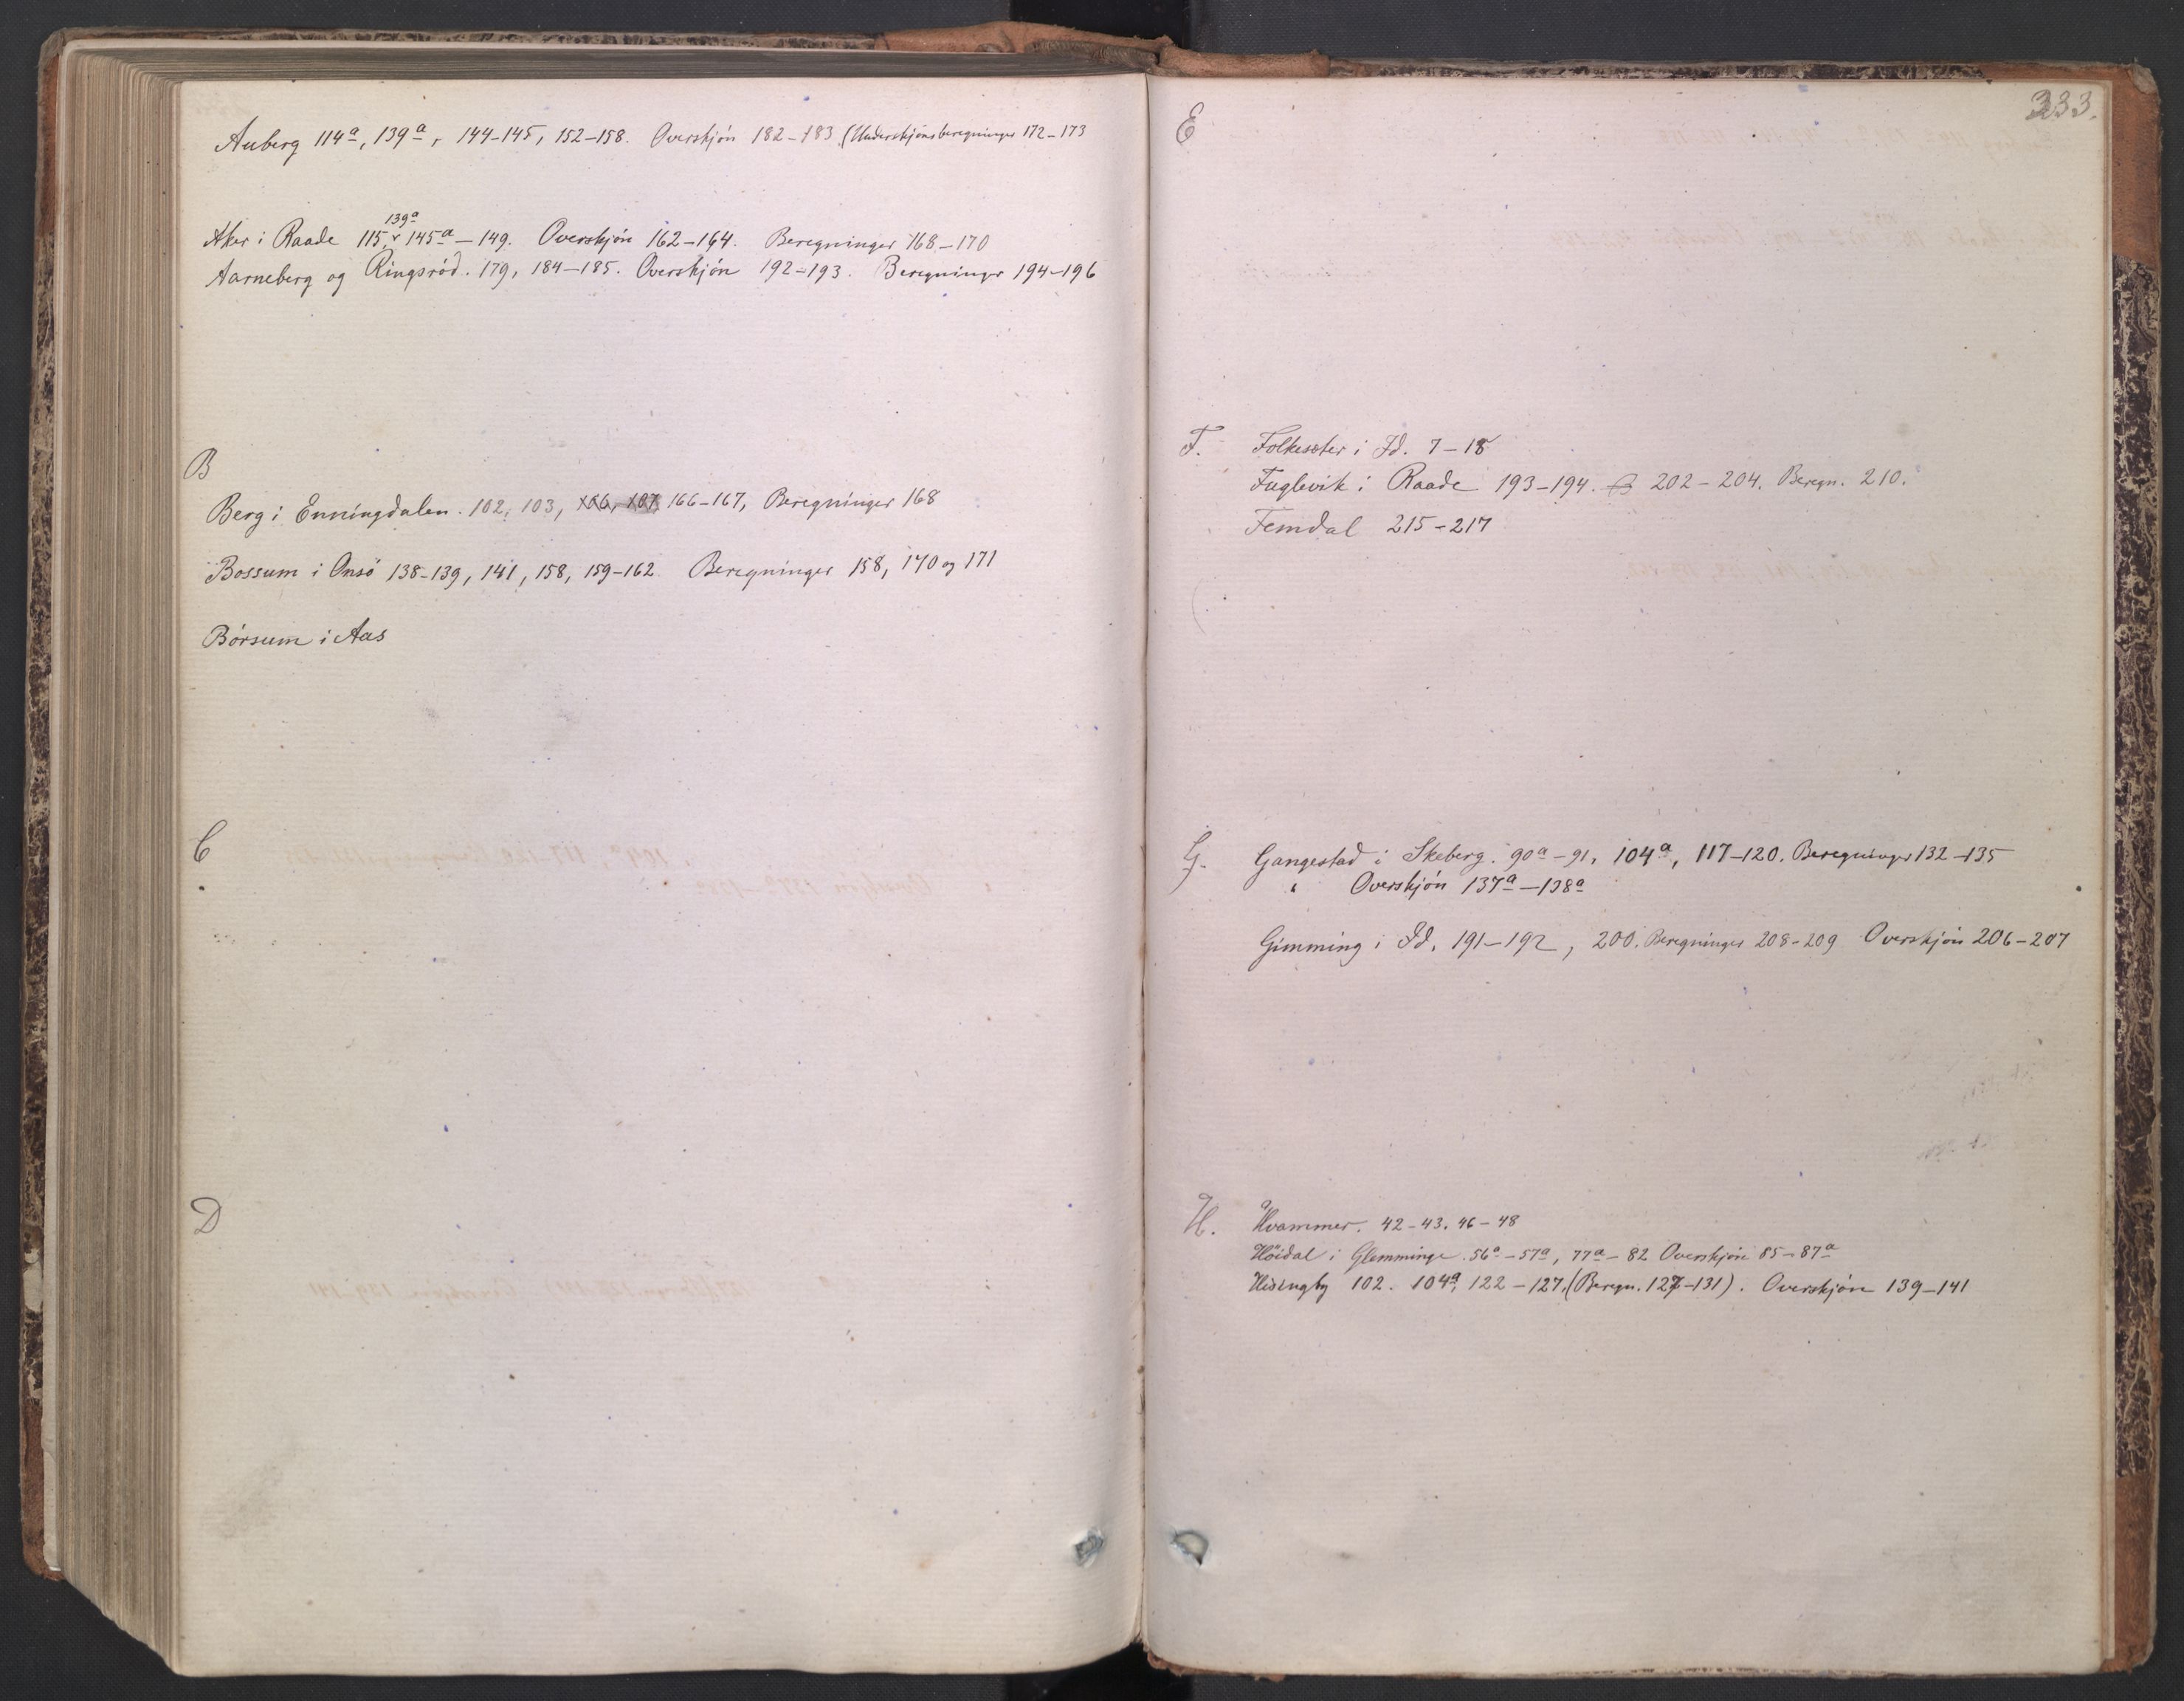 Auberg 114a, 139a, 144-145, 152-158. Overskjön 182-183 (Underskjönsberegninger 172-173
139a
Aker i Raade 115, 145a-149. Overskjön 162-164. Beregninger 168-170
Aarneberg og Ringsröd. 179, 184-185. Overskjön 192-193. Beregninger 194-196
B
Berg i Enningdalen. 102, 103, 106, 107 166-167, Beregninger 168
Bossum i Onsö 138-139, 141, 158, 159-162 Beregninger 158, 170 og 171
Börsum i Aas
C
D
333.
E
F. Folkesæter i Id. 7-18
Fuglevik i Raade 193-194. 202-204. Beregn. 210.
Femdal 215-217
G. Gangestad i Skeberg. 90a-91, 104a, 117-120. Beregninger 132-135
" Overskjön 137a-138a
Gimming i Id. 191-192, 200. Beregninger 208-209 Overskjön 206-207
H. Hvammer. 42-43. 46-48
Höidal i Glemminge. 56a-57a, 77a-82 Overskjön 85-87a
Hisingby 102. 104a, 122-127, (Beregn. 127-131). Overskjön 139-141